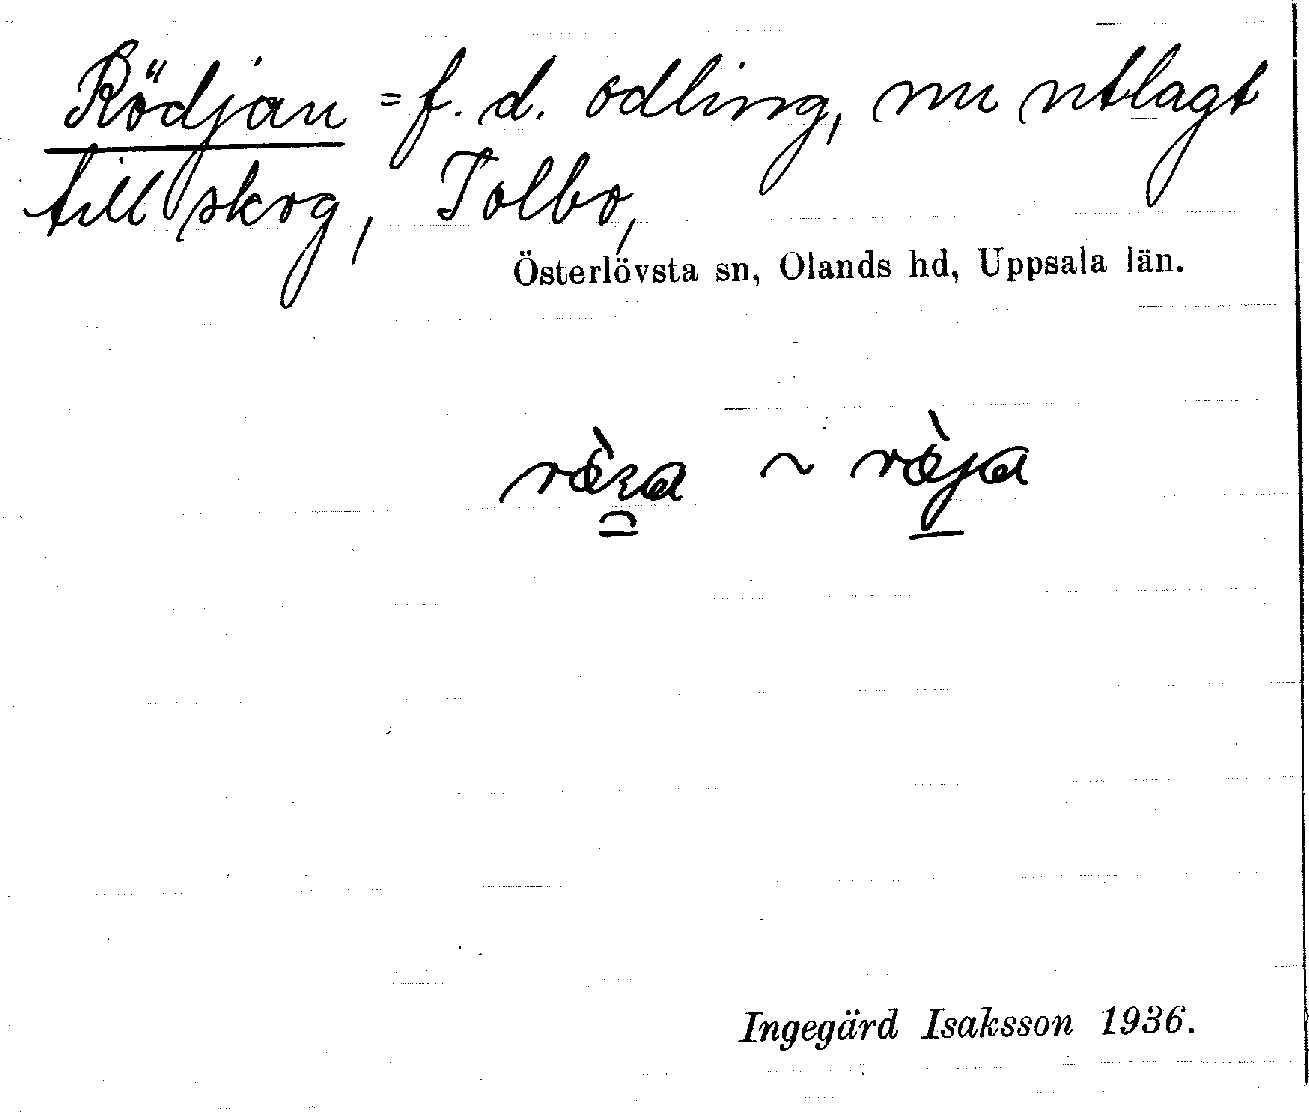 Rödjan = f. d. odling, nu utlagt
till skog, Tolbo,
Österlövsta sn, Olands hd, Uppsala län.
~
Ingegärd Isaksson 1936.